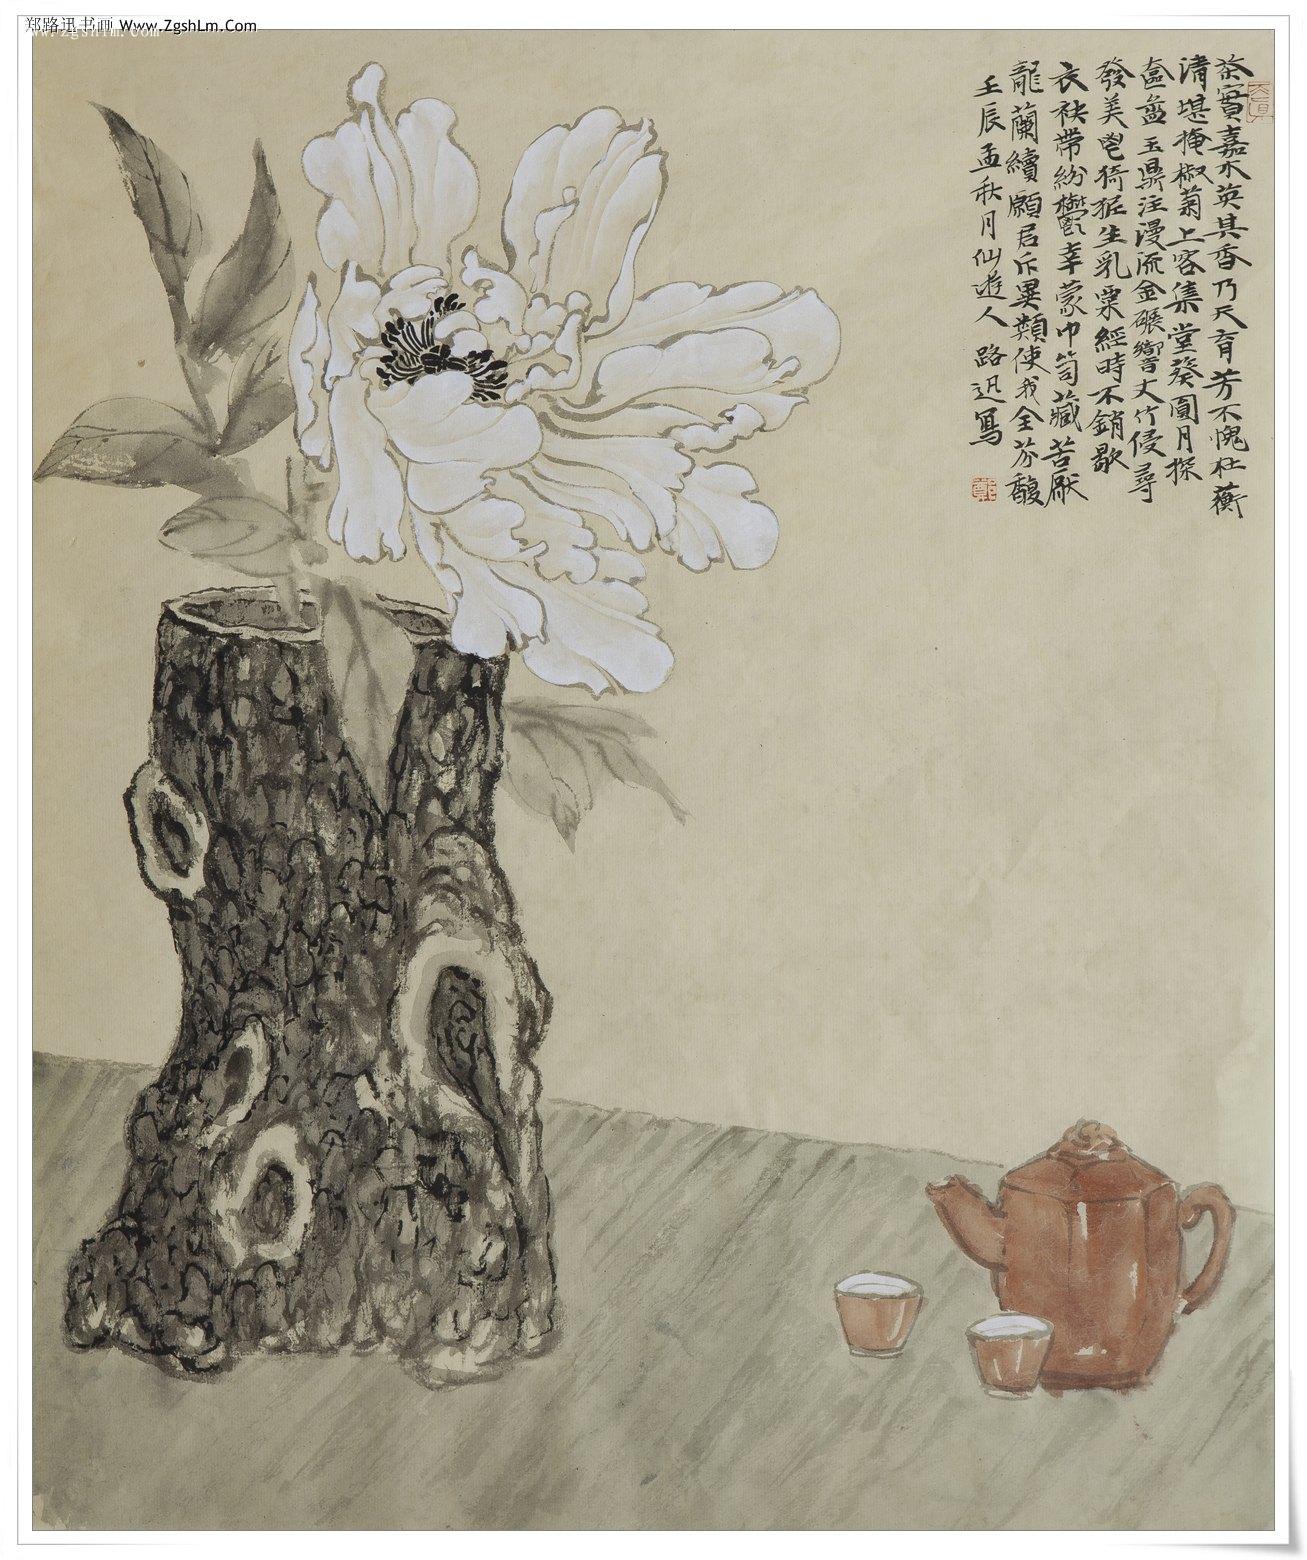 郑路迅书画 Www.ZgshLm.Com
www.zgshlm.com
茶實嘉木英其香乃天育芳不愧杜蘅
清堪掩椒菊上客集堂葵圓月探
奩盝玉鼎注漫流金碾響丈竹侵尋
發美鬯猗狔生乳粟經時不銷歇
衣袂帶紛鬱幸蒙巾笥藏苦厭
龍蘭續願君斥異類使我全芬馥
壬辰孟秋月仙遊人路迅寫
鄭